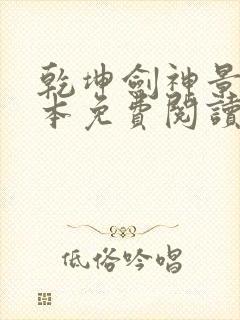 乾坤劍神景
本免費閱讀
低俗吟唱